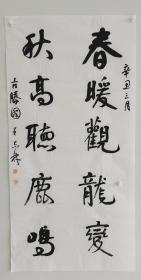 辛丑三月
春暖觀龍變
秋高聽鹿鳴
古勝國